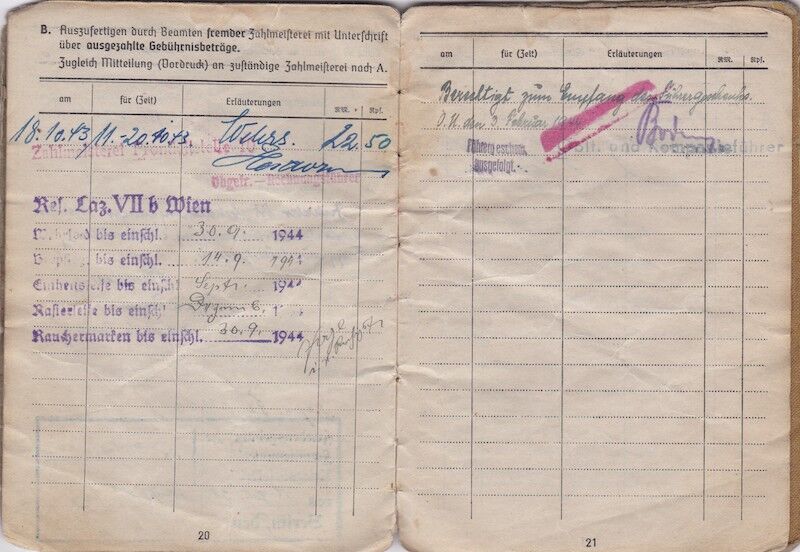 B. Auszufertigen durch Beamten fremder Zahlmeisterei mit Unterschrift
über ausgezahlte Gebührnisbeträge.
Zugleich Mitteilung (Vordruck) an zuständige Zahlmeisterei nach A.
am für (Zeit) Erläuterungen RM. Rpf.
18.10.43 11.-20.10.43. Wehrs. 22.50
Zahlmeisterei
Obgefr. Rechnungsführer
Res. Laz. VII b Wien
bis einschl. 30.9. 1944
bis einschl. 14.9. 1944
Einheitsseife bis einschl. Sept.
Rasierseife bis einschl.
Rauchermarken bis einschl. 30.9. 1944
20
am für (Zeit) Erläuterungen RM. Rpf.
Berechtigt zum Empfang des Führergeschenks.
O.U. den 3. Februar
Führergeschenk
ausgefolgt.
und Kompanieführer
21